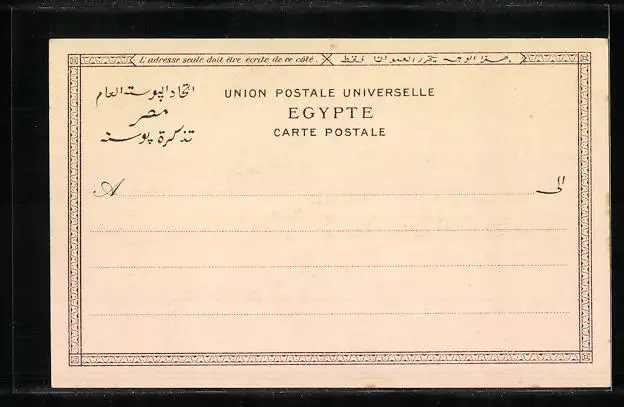 L'adresse seule doit être écrite de ce côté. هذا الوجه يحرر العنوان فقط
اتحاد البوستة العام
مصر
تذكرة بوسته
UNION POSTALE UNIVERSELLE
EGYPTE
CARTE POSTALE
A الى